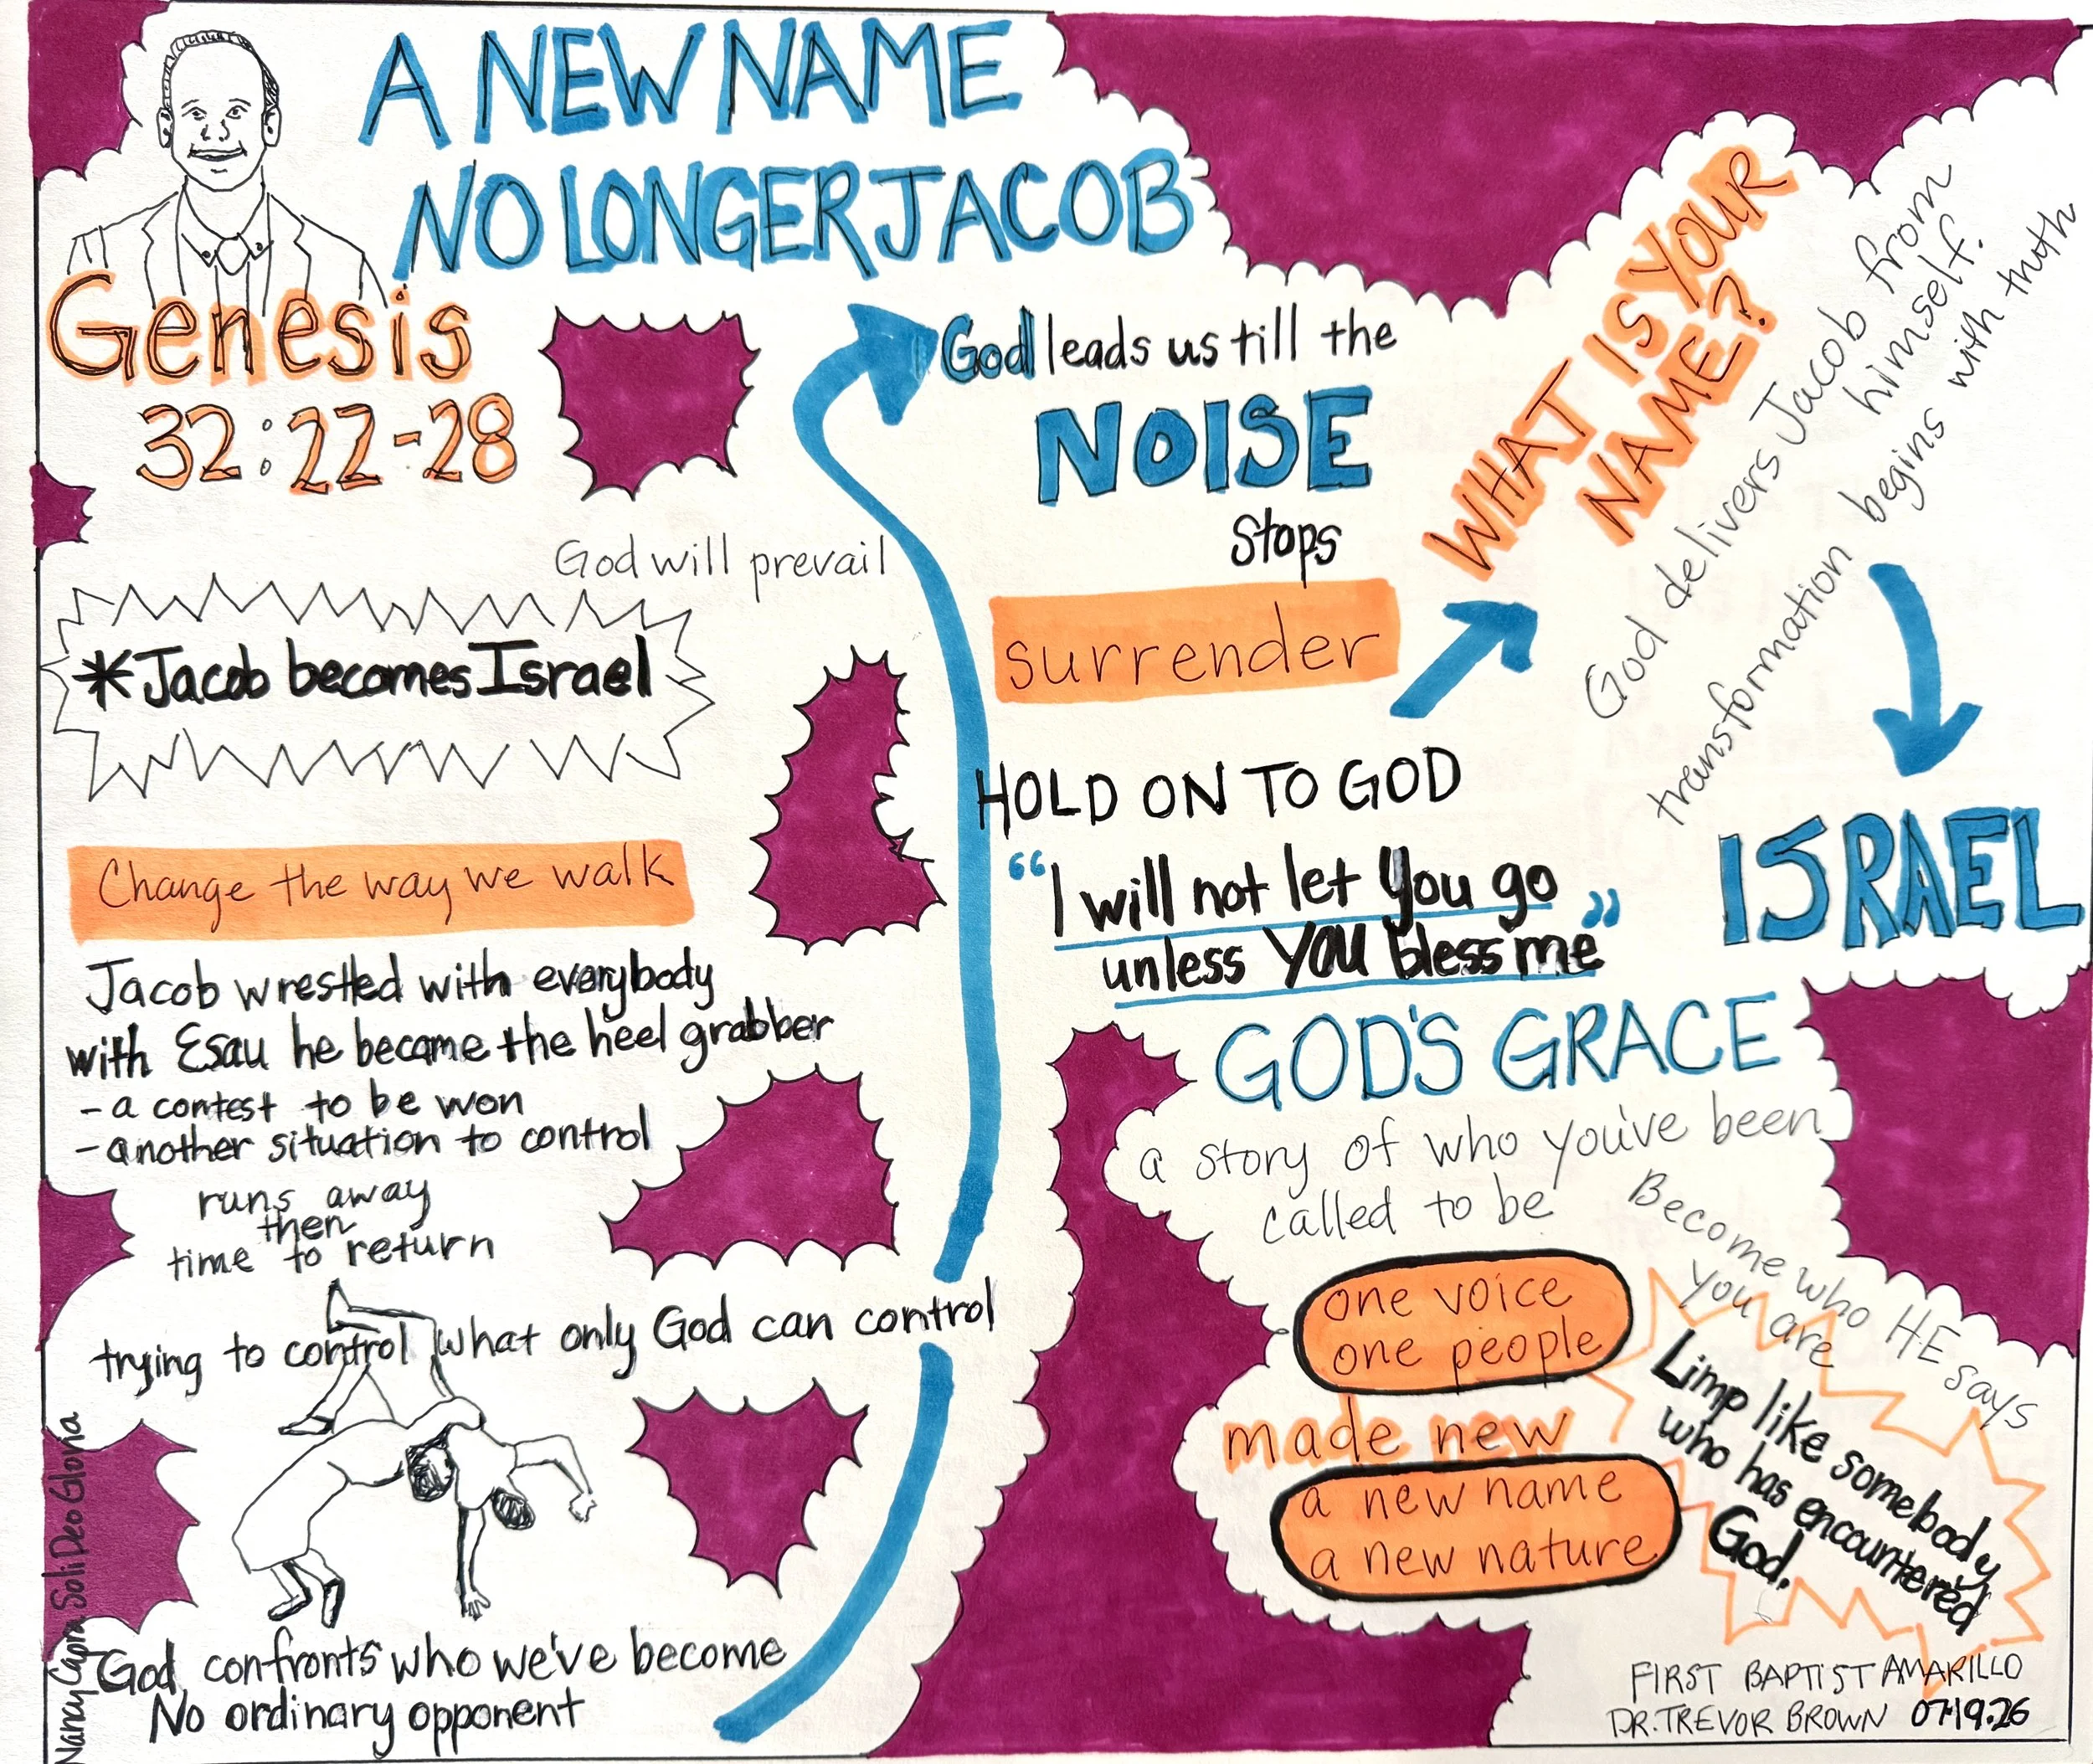 A NEW NAME
NO LONGER JACOB
Genesis
32:22-28
God will prevail
*Jacob becomes Israel
Change the way we walk
Jacob wrestled with everybody
with Esau he became the heel grabber
- a contest to be won
- another situation to control
runs away
then
time to return
trying to control what only God can control
God confronts who we've become
No ordinary opponent
Nancy Capra Soli Deo Gloria
God leads us till the
NOISE
Stops
surrender
HOLD ON TO GOD
"I will not let you go
unless YOU bless me"
WHAT IS YOUR
NAME?
God delivers Jacob from
himself.
transformation begins with truth
ISRAEL
GOD'S GRACE
a story of who you've been
called to be
Become who HE says
you are
one voice
one people
made new
a new name
a new nature
Limp like somebody
who has encountered
God.
FIRST BAPTIST AMARILLO
DR. TREVOR BROWN 07.19.26